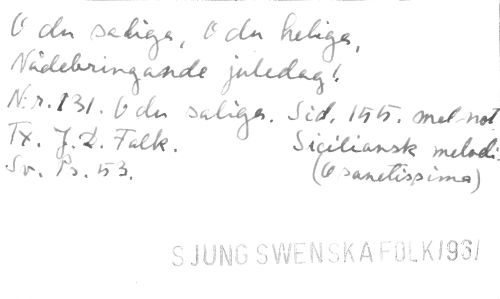 O du saliga, O du heliga,
Nådebringande juledag!
N:r. 131. O du saliga. Sid. 155. mel-not
Tx. J. D. Falk. Siciliansk melodi.
Sv. Ps. 53. (O sanctissima)
SJUNG SWENSKA FOLK 1961